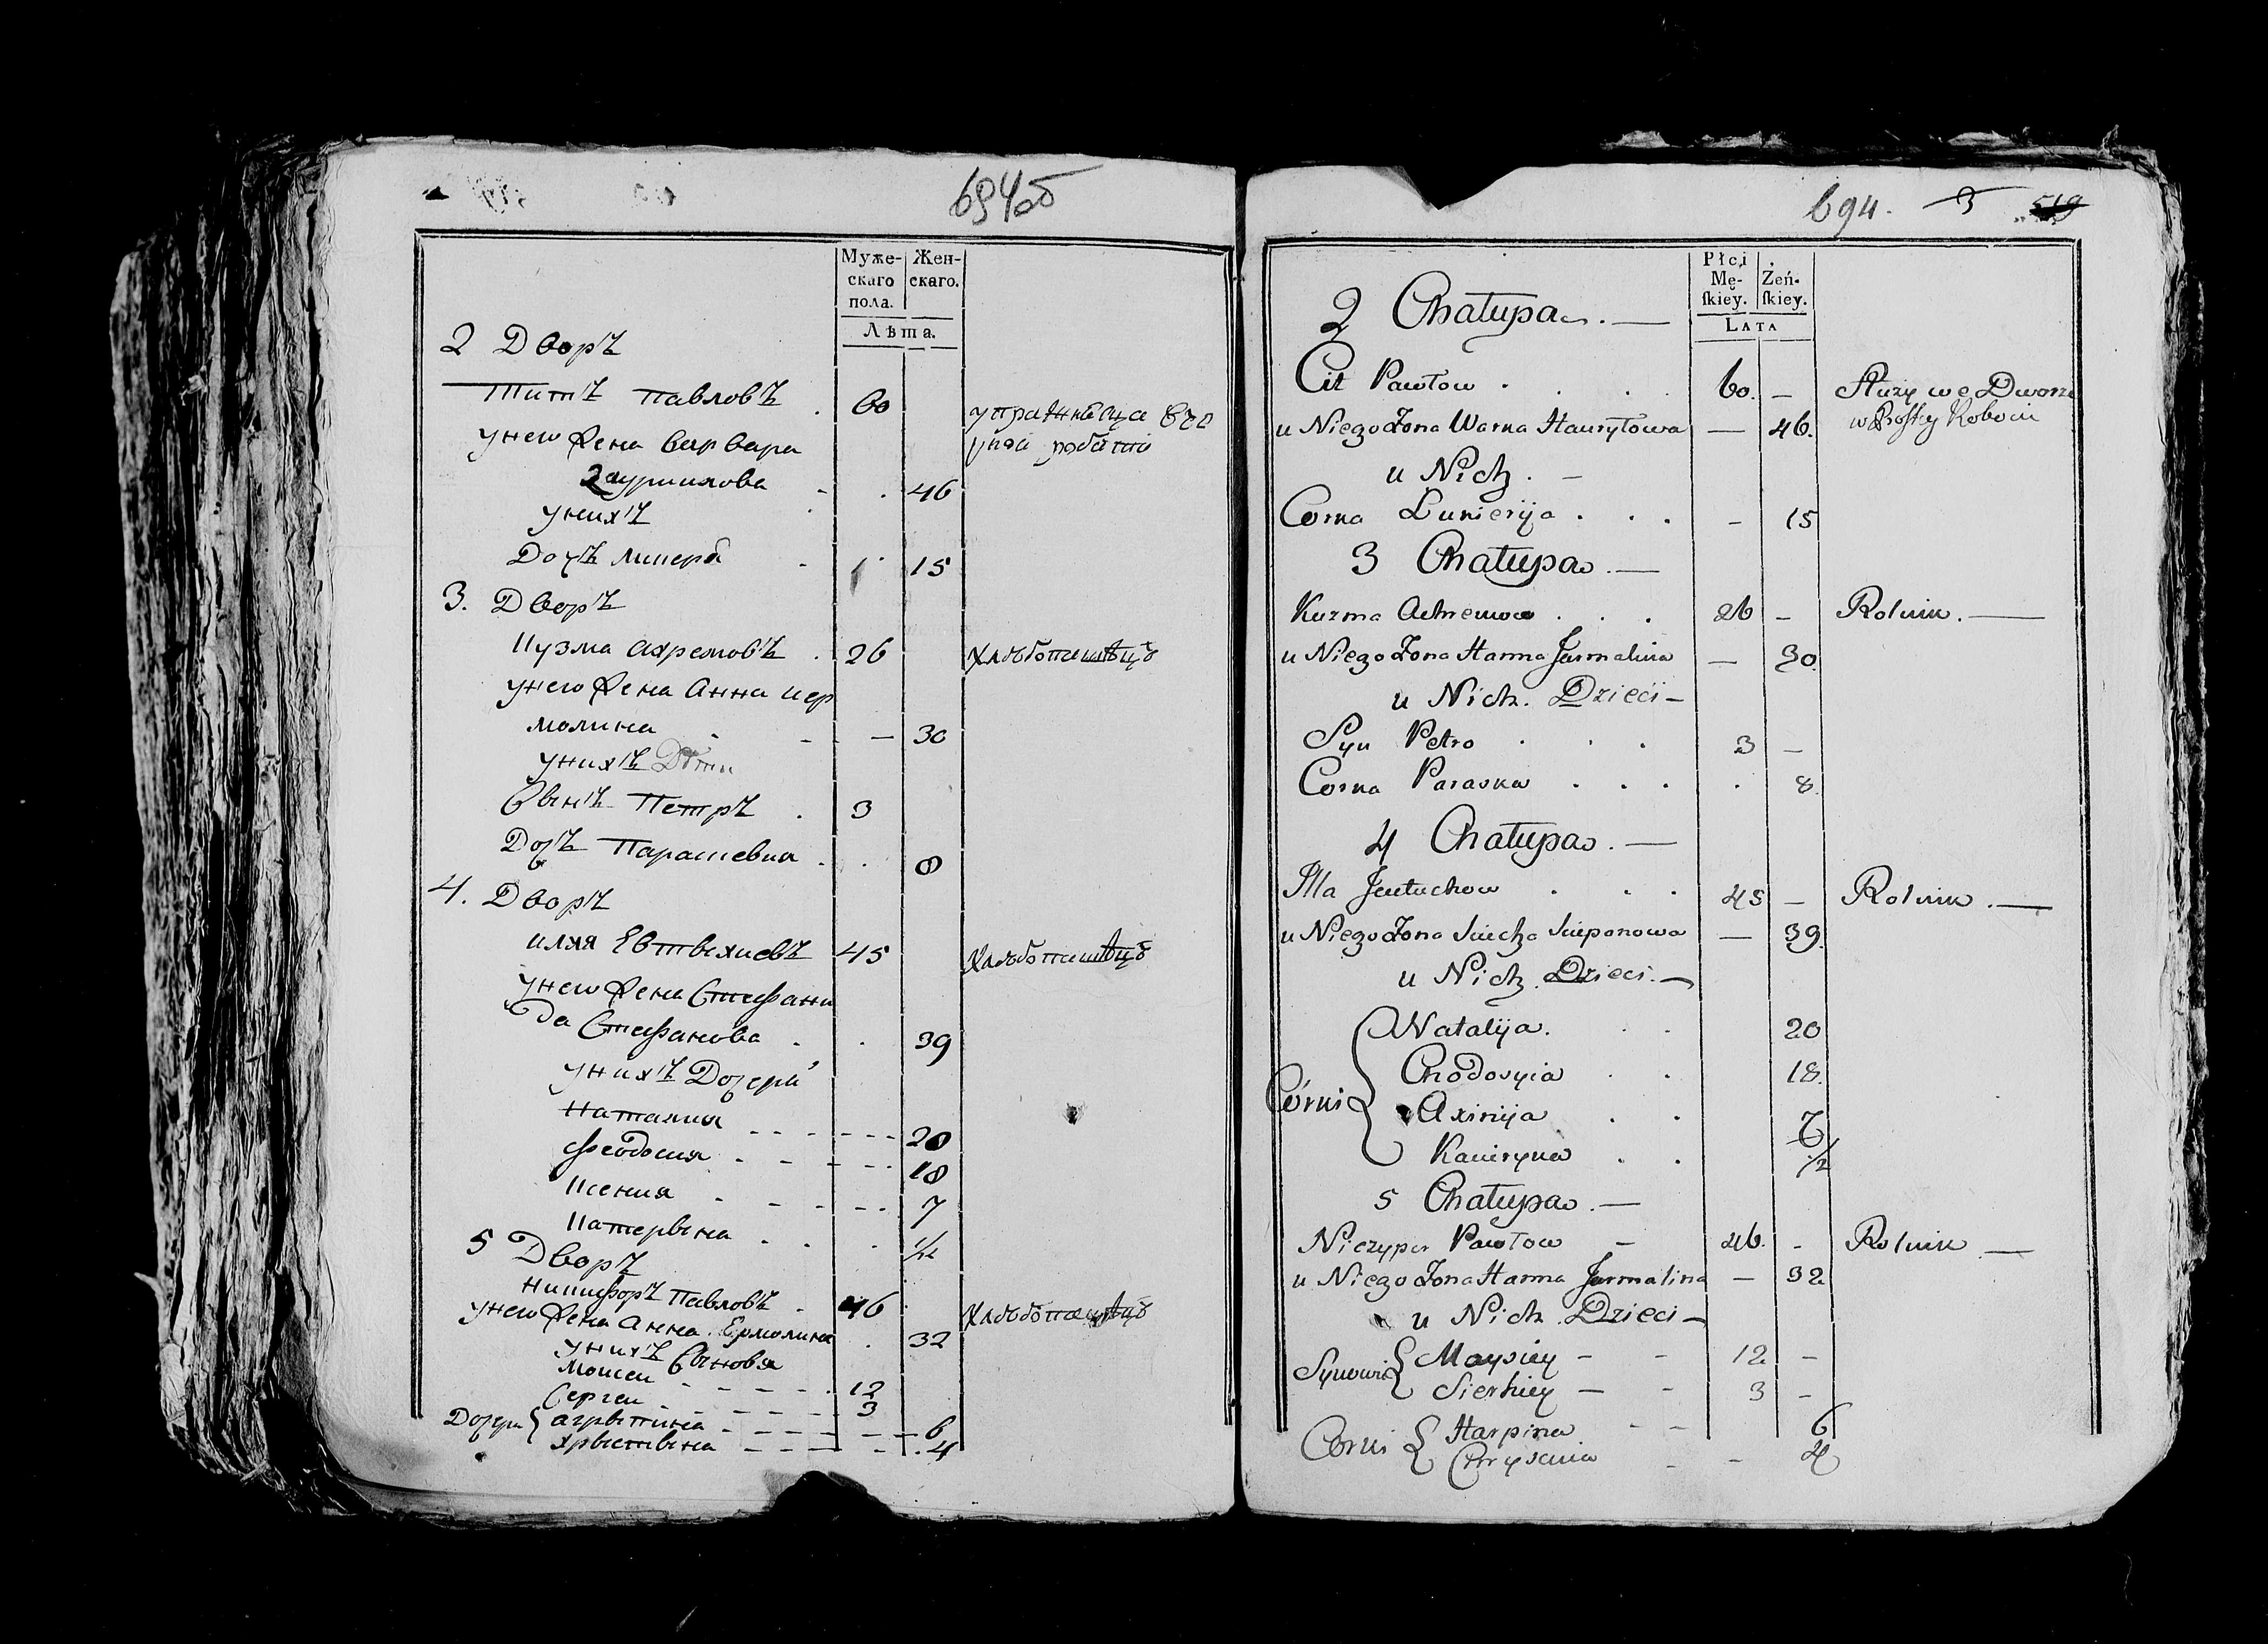 694об
Муже-
скаго
пола.
Жен-
скаго.
Лѣта.
2 Дворъ
Титъ Павловъ . 60
унего Жена Варвара
Гаурилова - . 46
унихъ
Дочь Линера . 15
3. Дворъ
Кузма Ахремовъ . 26 хлѣбопашецъ
унего Жена Анна Иер
молина - - — 30
унихъ Дѣти
Сынъ Петръ . 3
Дочь Парасцевия . . 8
4. Дворъ
Илия Евтыхиевъ 45 хлѣбопашецъ
унего Жена Стефани
да Стефанова . . 39
унихъ Дочери
Наталия - - - - - - - 20
Феодосия - - - - - 18
Ксения - - - - - 7
Катерына . . . 1/2
5 Дворъ
Никифоръ Павловъ . 46 хлѣбопашецъ
унего Жена Анна Ермолина . 32
унихъ Сыновя
Моисей - - - - - 12
Сергей - - - - - 3
Дочери { Агрыпина - - - - - 6
Хрыстына - - - - . 4
694. 3 519
Płci
Mę-
ſkiey.
Żeń-
ſkiey.
LATA
2 Chałupa. —
Cit Pawłow . . . 60. — Służy we Dworze
w Robocie
u Niego Żona Warka Hauryłowa — 46.
u Nich. —
Corna Lunierija . . . - 15
3 Chałupa. —
Kuzma Achremow . . . 26 - Rolnik. —
u Niego Żona Hanna Jarmalina — 30.
u Nich. Dzieci —
Syn Petro . . . 3 —
Corna Paraska . . . . 8.
4 Chałupa. —
Illa Jeutuchow . . . 45 — Rolnik. —
u Niego Żona Sciecha Sciepanowa — 39.
u Nich Dzieci. —
Córki { Natalija. . . 20
Chodosyia . . 18.
Axinija . . 7
Kaciryna . . 1/2
5 Chałupa. —
Niczypor Pawłow — 46. - Rolnik —
u Niego Żona Hanna Jarmalina — 32
u Nich. Dzieci —
Synowie { Maysiey — - 12 —
Sierhiey — - 3 -
Corki { Harpina - - 6
Chryscina - - 4